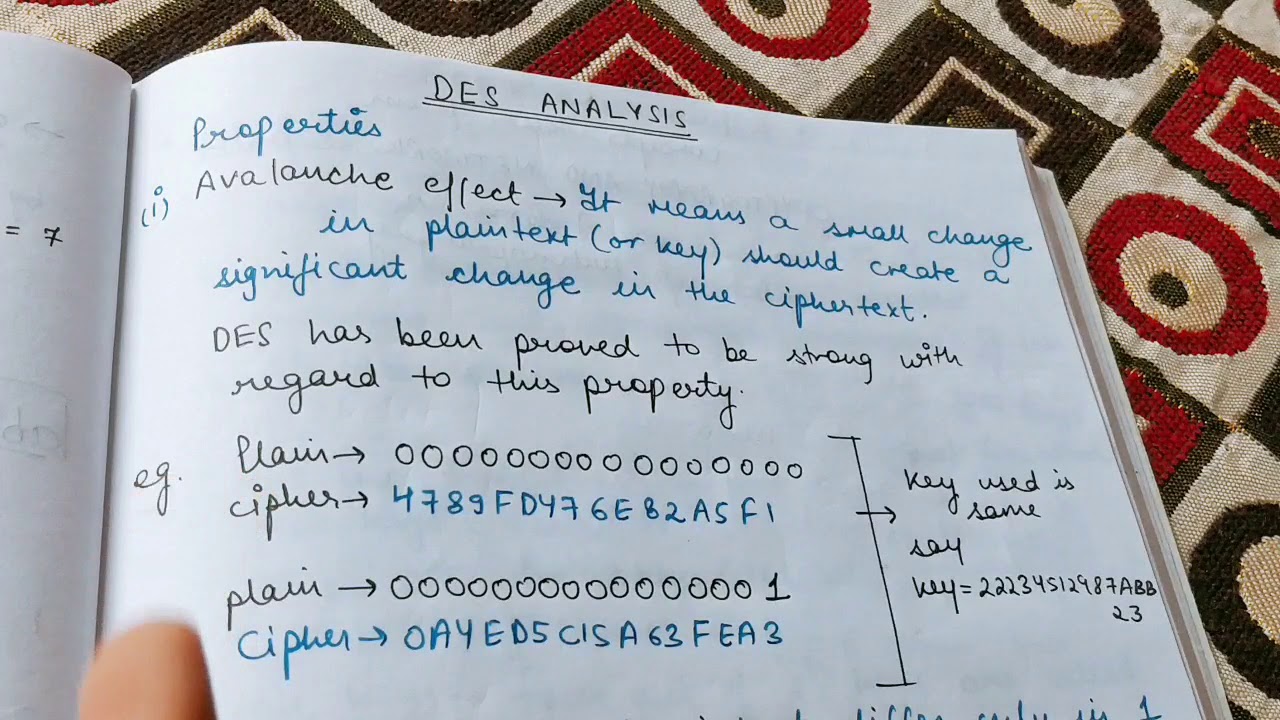 DES ANALYSIS
Properties
(i) Avalanche effect → It means a small change
in plaintext (or key) should create a
significant change in the ciphertext.
DES has been proved to be strong with
regard to this property.
eg. Plain → 0000000000000000
Cipher → 4789FD476E82A5F1
plain → 0000000000000001
Cipher → 0A4ED5C15A63FEA3
Key used is
same
say
key = 22234512987ABB
23
= 7
differ only in 1